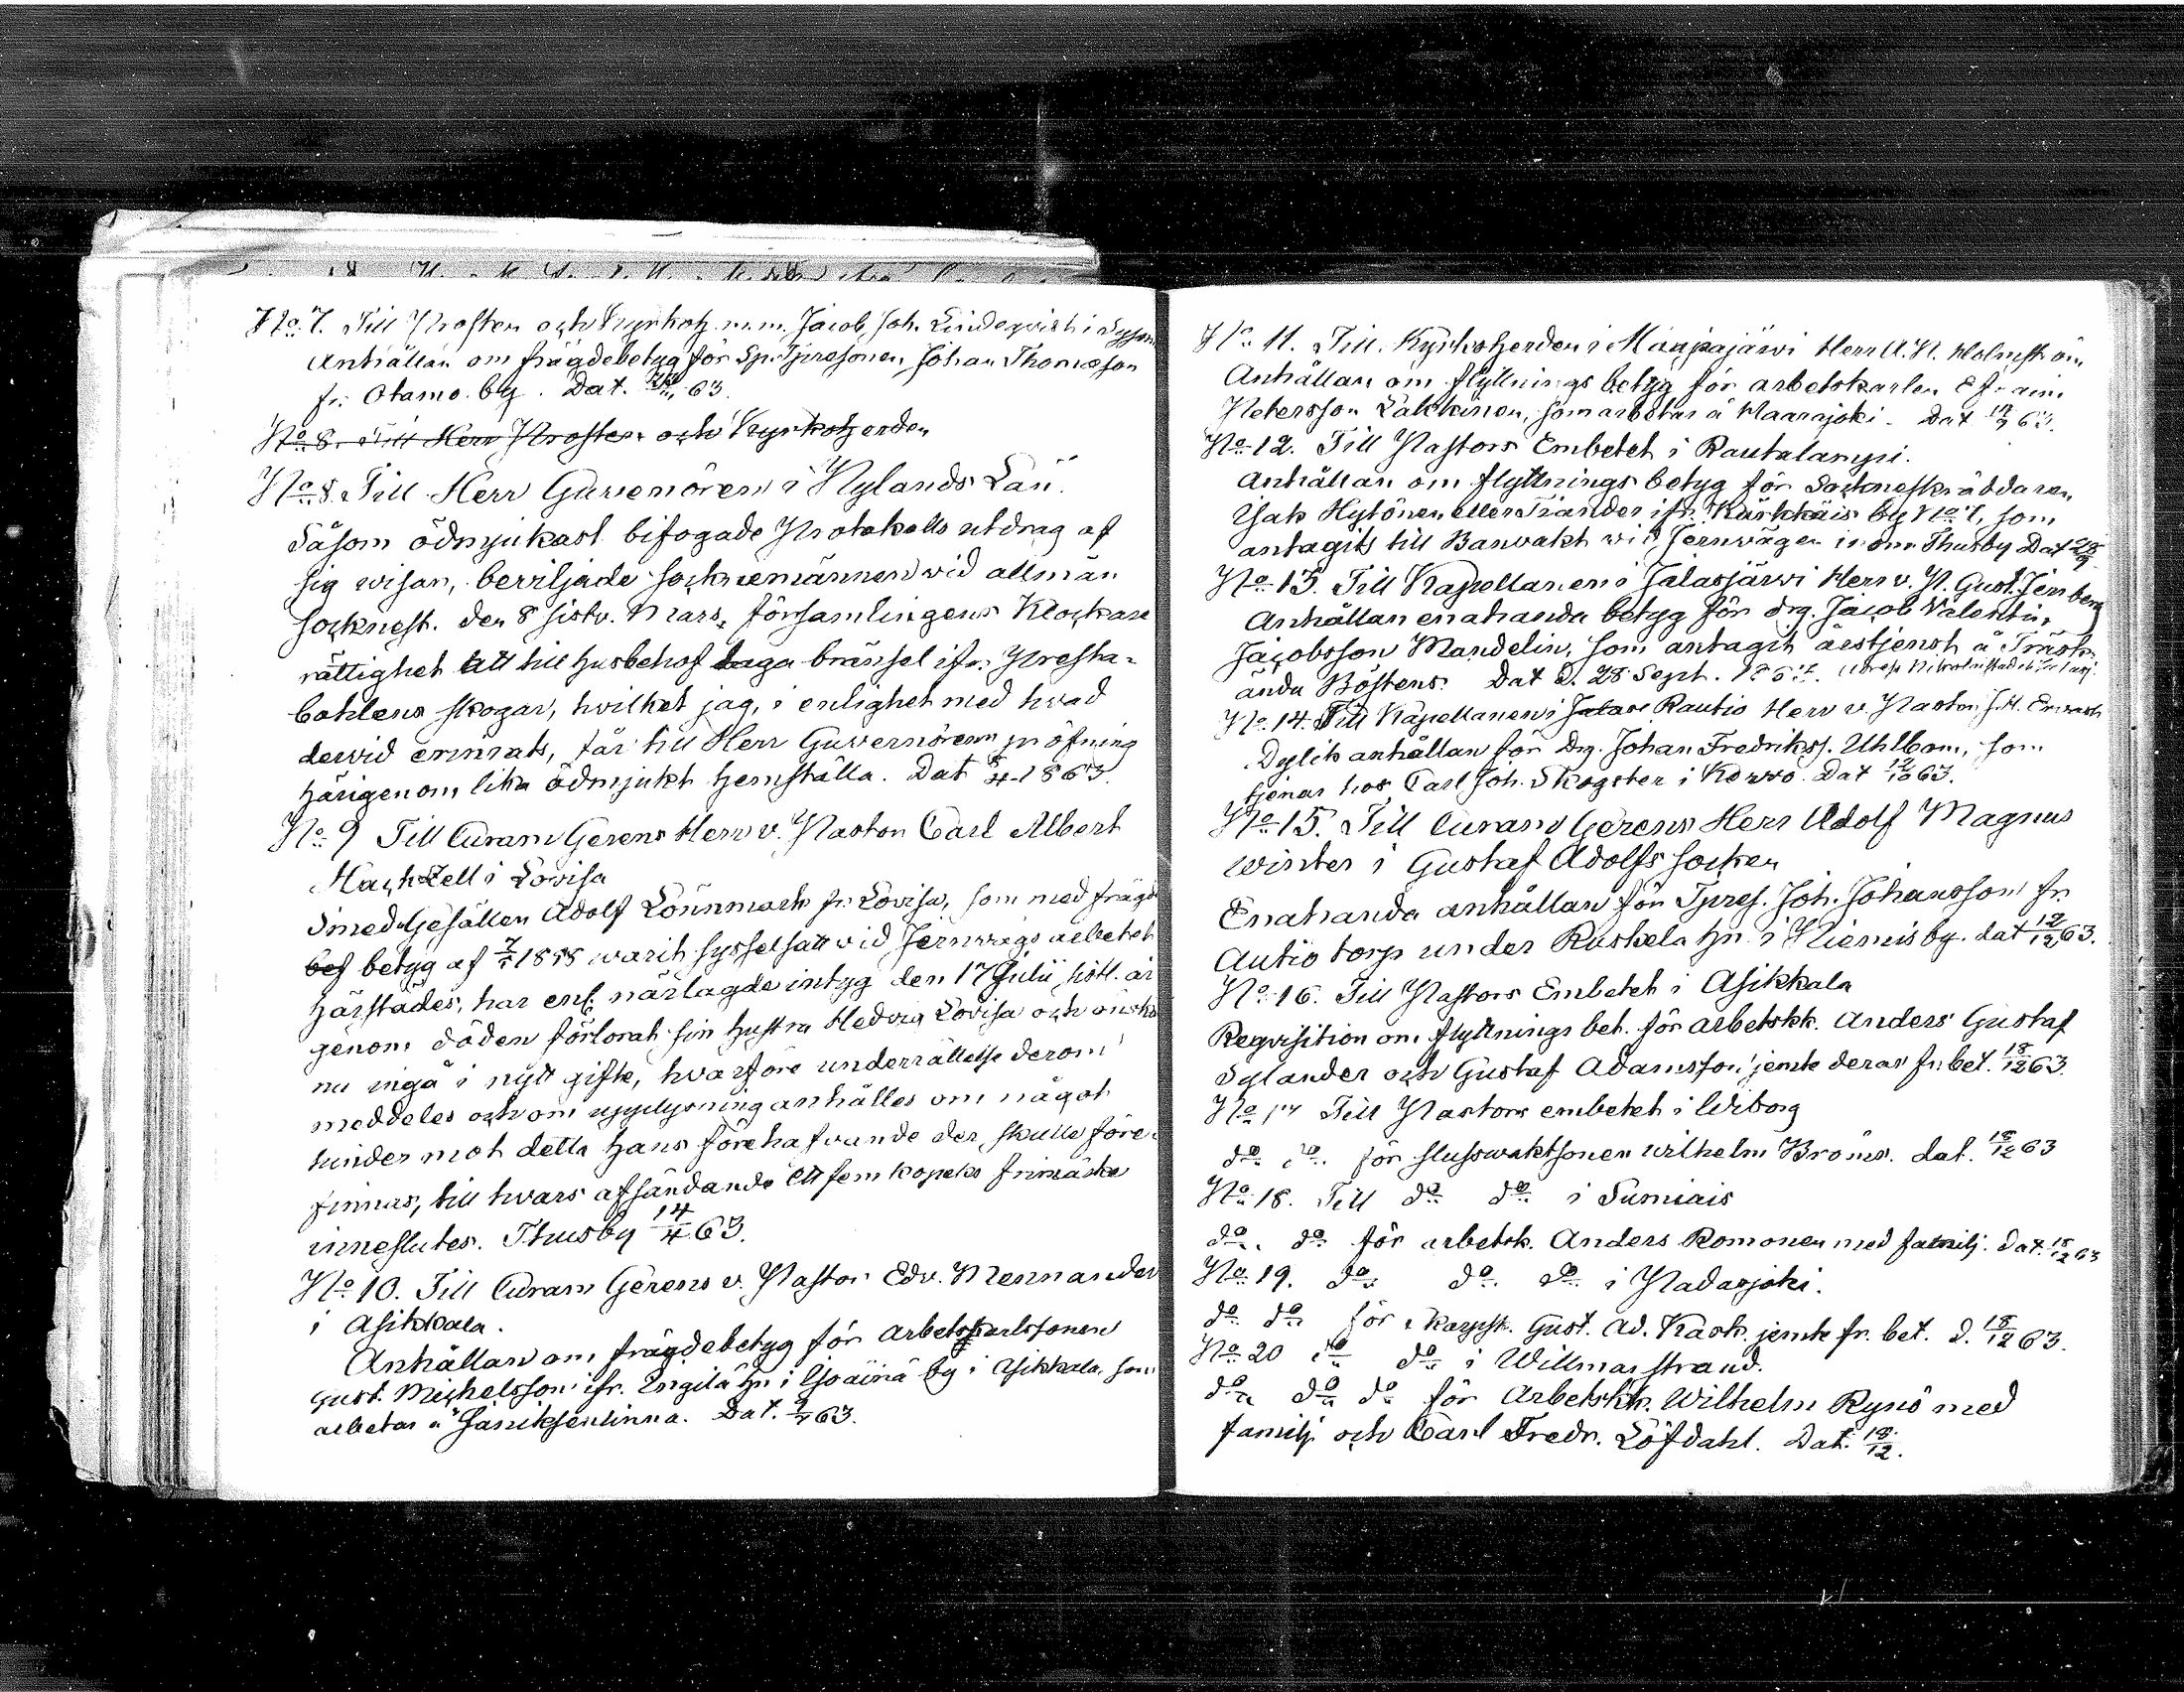 No 7. Till Prosten och Kyrkoh. m.m. Jacob Joh. Lindeqvist i
Anhållan om frägdebetyg för Sp. Tjvresonen Johan Thomasson
fr. Otamo by. Dat. 63.
No 8. Till Herr Prosten och Kyrkoherden
No 8. Till Herr Guvernören i Nylands Län.
Såsom ödmjukast bifogade Protokolls utdrag af
sig wisar, beviljade sockнемännen wid allmän
socknest. den 8 sistv. Mars, församlingens Klockare
rättighet att till husbehof taga bränsel ifr. Presta-
bohlens skogar, hvilket jag, i enlighet med hvad
dervid erinrats, får till Herr Guvernörens pröfning
härigenom lika ödmjukt hemställa. Dat 8/4 1863.
No 9 Till Curam Gerens Herr v. Pastor Carl Albert
Hackzell i Lovisa
Smeds Gesällen Adolf Lönnmark fr. Lovisa, som med frägde
bef betyg af 1858 warit sysselsatt wid Jernwägs arbetet
härstädes, har enl. närlagde intyg den 17 Julii sistl. år
genom döden förlorat sin hustru Hedvig Lovisa och önskar
nu ingå i nytt gifte, hvarföre underrättelse derom
meddeles och om upplysning anhålles om något
hinder mot detta hans förehafvande der skulle före-
finnas, till hvars afsändande ett fem kopeks frimärke
inneslutes. Thusby 14/4 63.
No 10. Till Curam Gerens v. Pastor Edv. Mennander
i Asikkala.
Anhållan om frägdebetyg för arbetskarlssonen
Gust. Michelsson ifr. Engilä hn i by i Asikkala, som
arbetar å Häniksenlinna. Dat. 63.
No 11. Till Kyrkoherden i Maapajärwi Herr A. H. Holmström
Anhållan om flyttnings betyg för arbetskarlen Efraim
Petersson Lakkinen, som arbetar å Haarajoki. Dat 63.
No 12. Till Pastors Embetet i Rautalampi.
Anhållan om flyttnings betyg för Sockneskräddaren
Isak Hytönen eller Tiander ifr. Kärkkäis by No 7, som
antagits till Banvakt wid Jernvägen inom Thusby Dat 28/9
No 13. Till Kapellanen i Jalasjärwi Herr v. P. Gust. Jernberg
Anhållan enahanda betyg för drg. Jacob Valentin
Jacobsson Mandelin, som antagit årstjenst å Träsk-
ända Böstens. Dat d. 28 Sept.
No 14. Till Kapellanen i Jalas Rautio Herr v. Pastor J. H.
Dylik anhållan för Drg. Johan Fredrikss. Uhlbom, som
tjenar hos Carl Joh. Skogster i Korso. Dat 12/10 63.
No 15. Till Curam Gerens Herr Adolf Magnus
Winter i Gustaf Adolfs socken
Enahanda anhållan för Tpres. Joh. Johansson fr.
Autio torp under Ruskela hn. i Niemis by. dat 12/12 63.
No 16. Till Pastors Embetet i Asikkala
Reqvisition om flyttnings bet. för arbetskk. Anders Gustaf
Sylander och Gustaf Adamsson jemte deras fr. bet. 18/12 63.
No 17 Till Pastors embetet i Wiborg
do do för slusswaktsonen Wilhelm Broms. dat. 18/12 63
No 18. Till do do i Sumiais
do do för arbetsk. Anders Romonen med familj. Dat. 18/12 63
No 19. do do do i Padasjoki.
do do för Gust. Ad. Kask. jemte fr. bet. d. 18/12 63.
No 20 do do i Willmanstrand.
do do do för Arbetskk. Wilhelm Rynö med
familj och Carl Fredr. Löfdahl. Dat. 18/12.